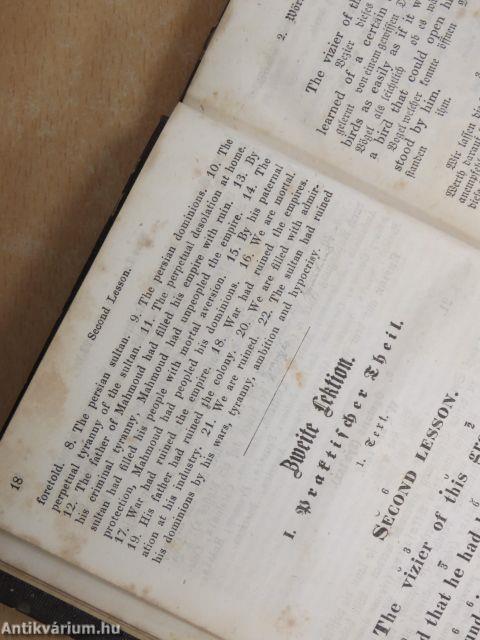 18
Second Lesson.
foretold. 8. The persian sultan. 9. The persian dominions. 10. The
perpetual tyranny of the sultan. 11. The perpetual desolation at home.
12. The father of Mahmoud had filled his empire with ruin. 13. By
his criminal tyranny, Mahmoud had unpeopled the empire. 14. The
sultan had filled his people with mortal aversion. 15. By his paternal
protection, Mahmoud had peopled his dominions. 16. We are mortal.
17. War had ruined the empire. 18. War had ruined the empires.
19. His father had ruined the colony. 20. We are filled with admir-
ation at his industry. 21. We are ruined. 22. The sultan had ruined
his dominions by his wars, tyranny, ambition and hypocrisy.
Zweite Lektion.
I. Praktischer Theil.
1. Text.
SECOND LESSON.
The vizier of this
that he had
2. Wört
The vizier of th
Vezier dieses
learned of a certain
gelernt von einem gewissen
birds as easily as if it w
Vögel als leichtlich ob es
a bird that could open h
Vogel welcher konnte öffnen
stood by him.
standen ihm.
Wir lassen
Antikvárium.hu